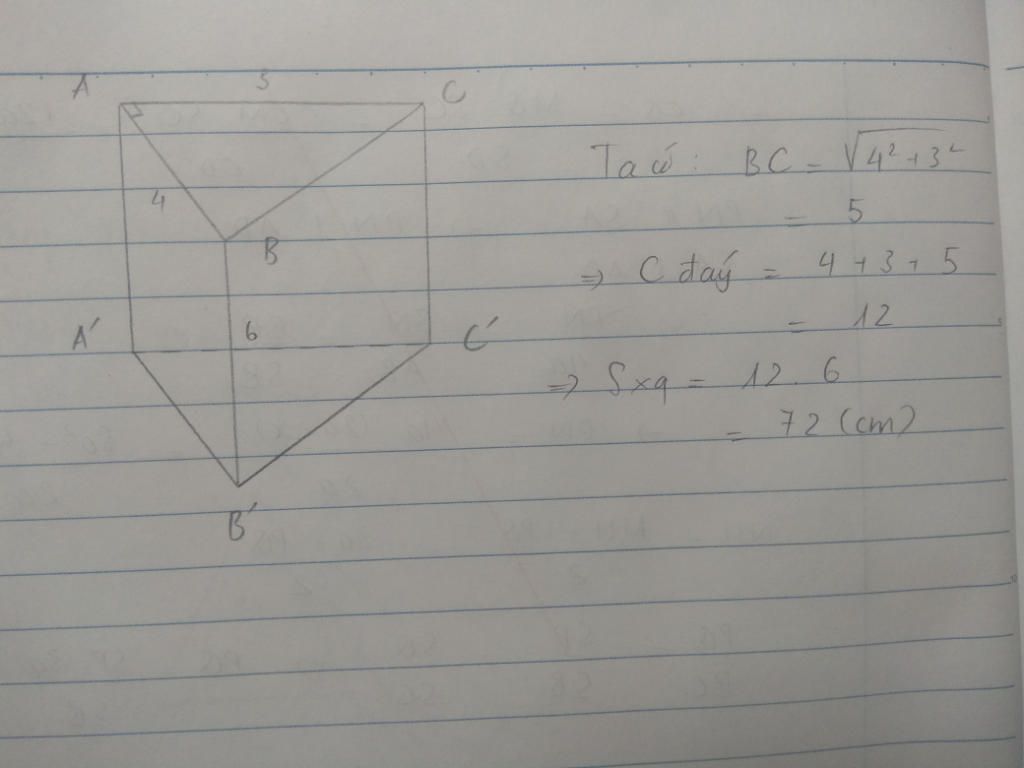 A 3 C
4
B
A' 6 C'
B'
Ta có: BC = √4² + 3²
= 5
=> C đaý = 4 + 3 + 5
= 12
=> Sxq = 12 . 6
= 72 (cm)